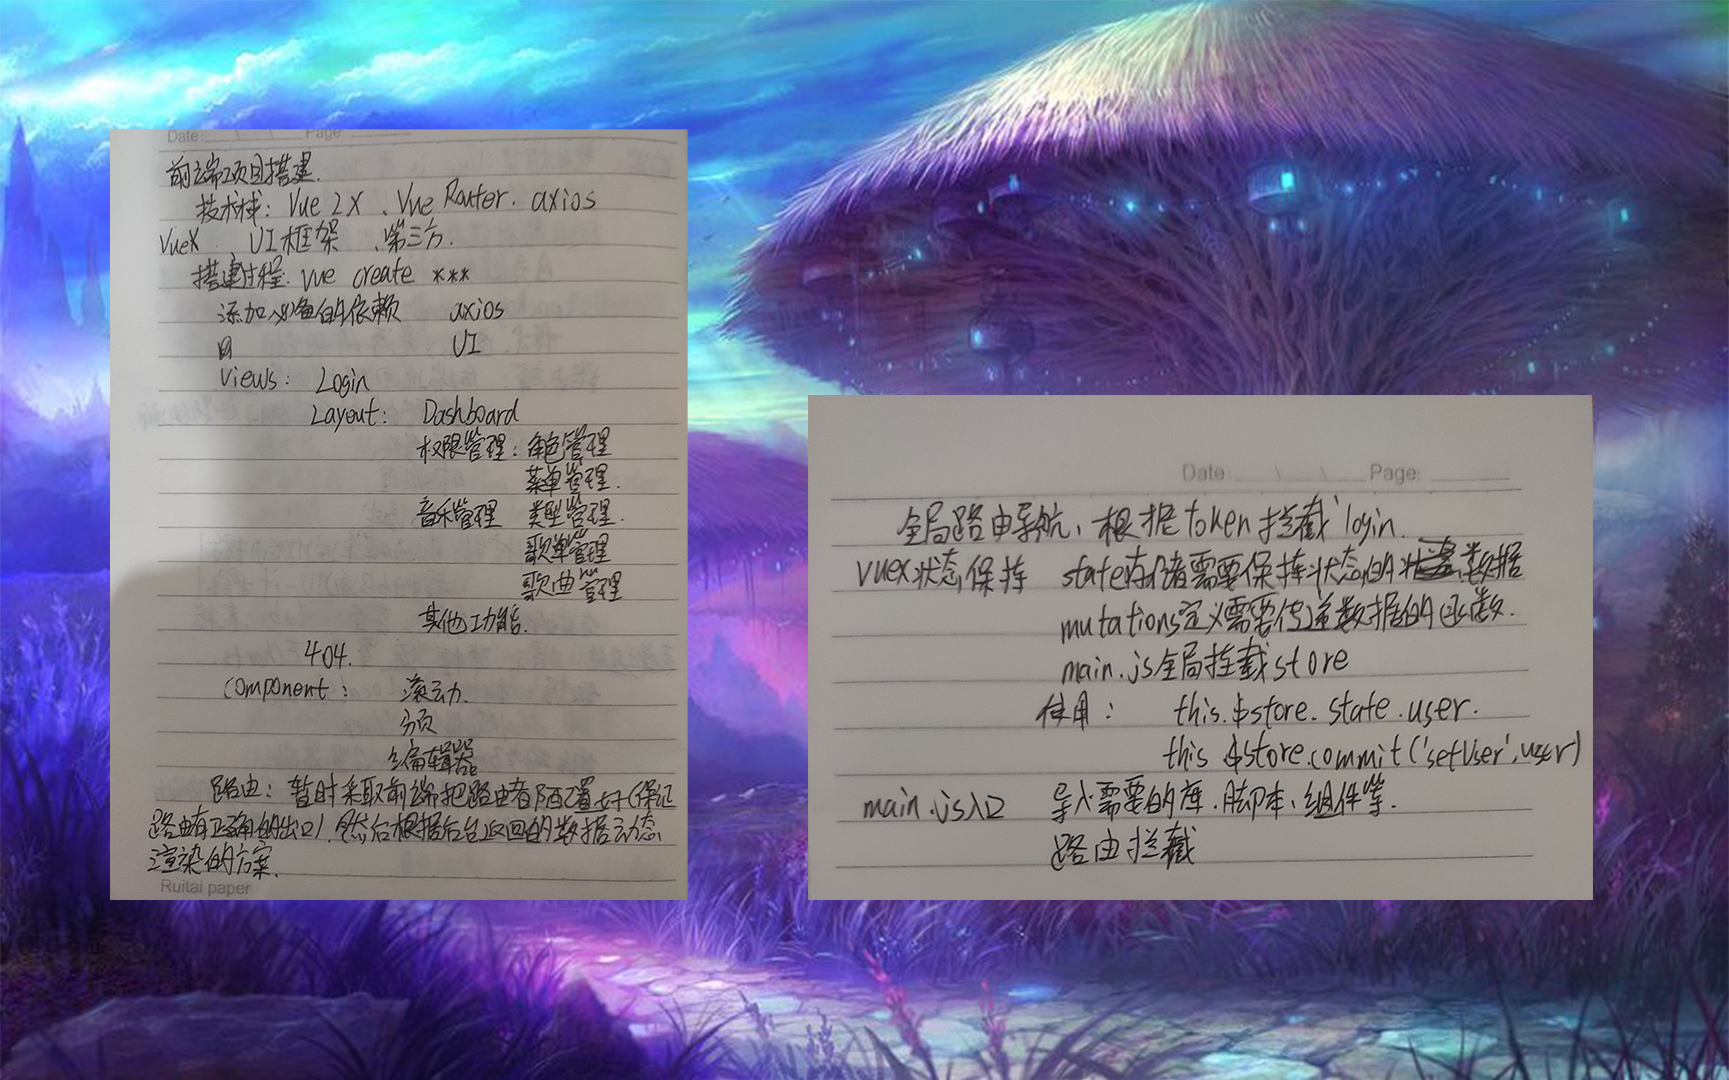 Date: / / Page:
前端项目搭建.
技术栈: Vue 2X 、Vue Router. axios
VueX 、UI框架 、第三方.
搭建过程: vue create ***
添加必备的依赖 axios
UI
Views: Login
Layout: Dashboard
权限管理: 角色管理
菜单管理.
音乐管理 类型管理.
歌单管理
歌曲管理
其他功能.
404.
Component: 滚动.
分页
编辑器
路由: 暂时采取前端把路由者配置好(保证
路由有正确的出口), 然后根据后台返回的数据动态
渲染的方案.
Ruitai paper
Date: / / Page:
全局路由导航, 根据token拦截 login.
vuex状态保持 state存储需要保持状态的数据
mutations定义需要传递数据的函数.
main.js全局挂载store
使用: this.$store.state.user.
this.$store.commit('setUser',user)
main.js入口 导入需要的库.脚本、组件等.
路由拦截